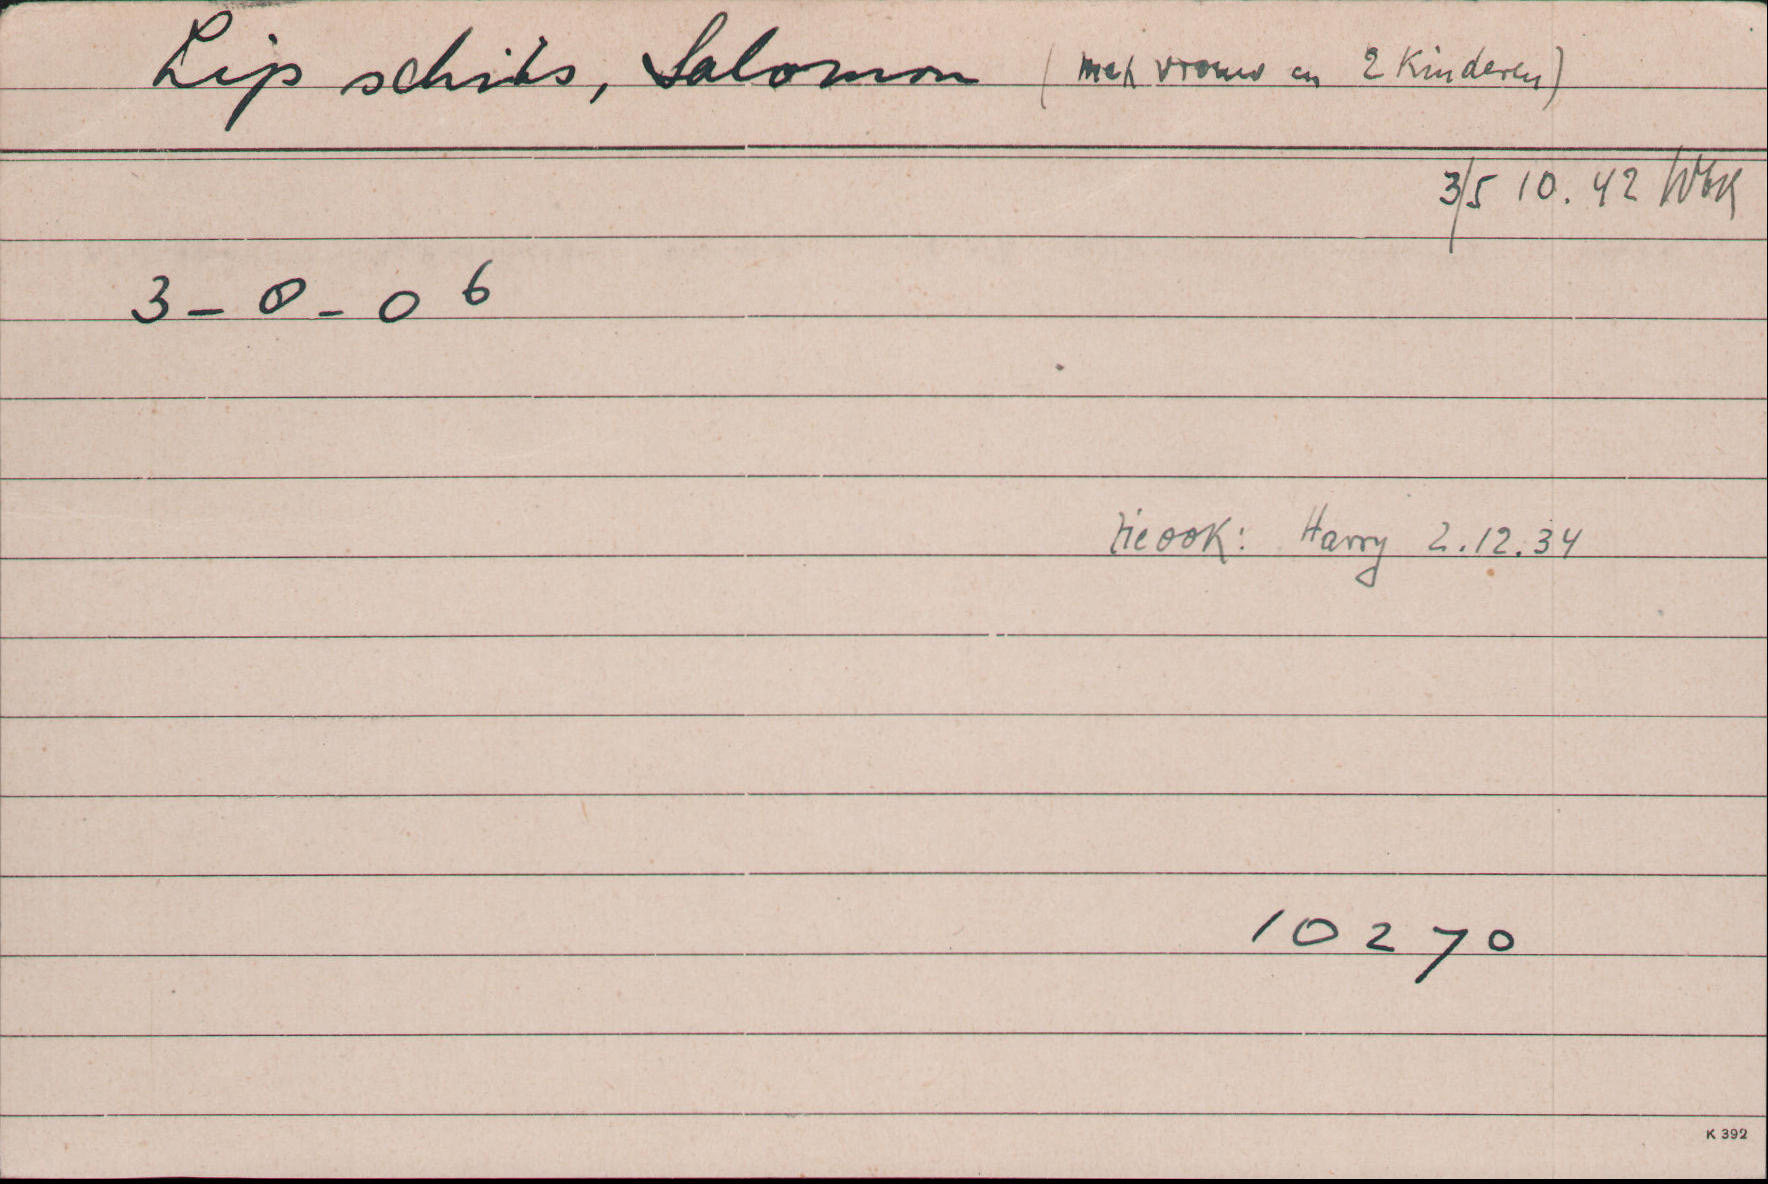 Lipschits, Salomon (met vrouw en 2 Kinderen)
3/5 10.42 WBK
3-8-06
Zie ook: Harry 2.12.34
10270
K 392